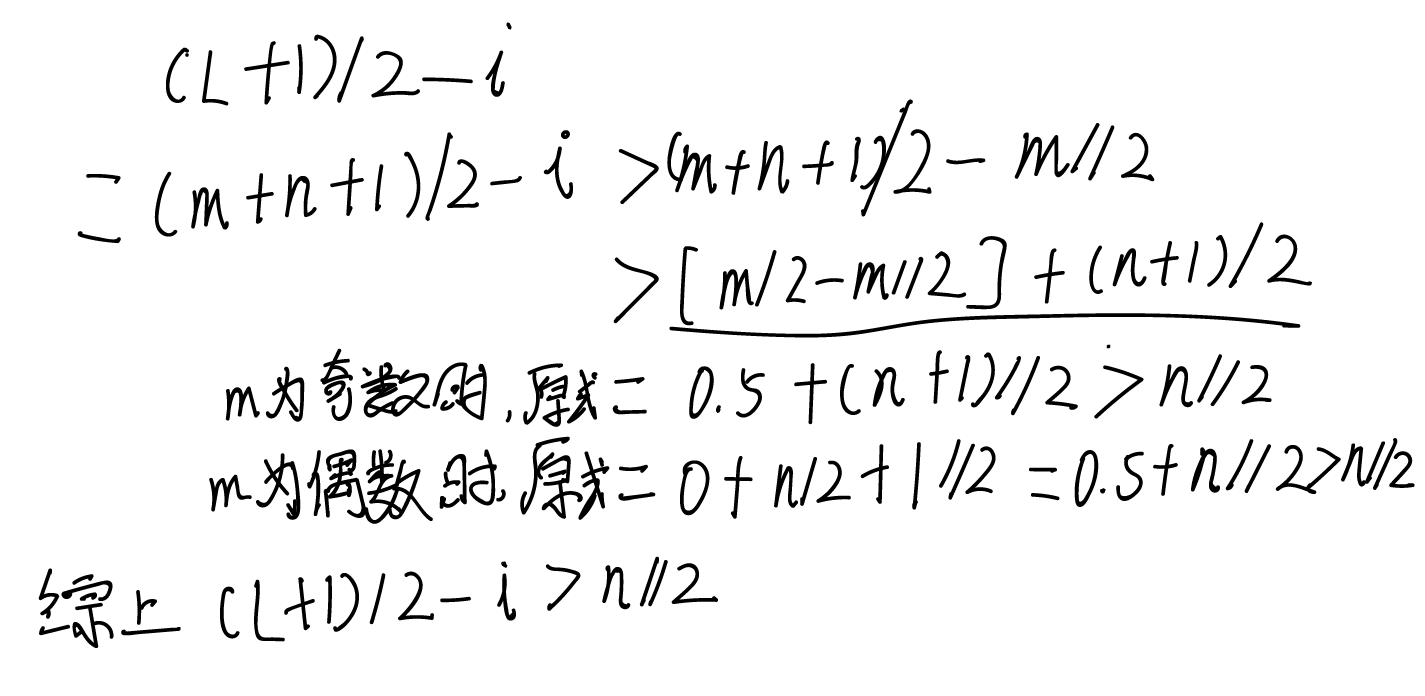 (L+1)/2-i
=(m+n+1)/2-i >(m+n+1)/2-m//2
>[m/2-m//2]+(n+1)/2
m为奇数时,原式= 0.5+(n+1)//2>n//2
m为偶数时,原式=0+n/2+1//2=0.5+n//2>n//2
综上 (L+1)/2-i>n//2